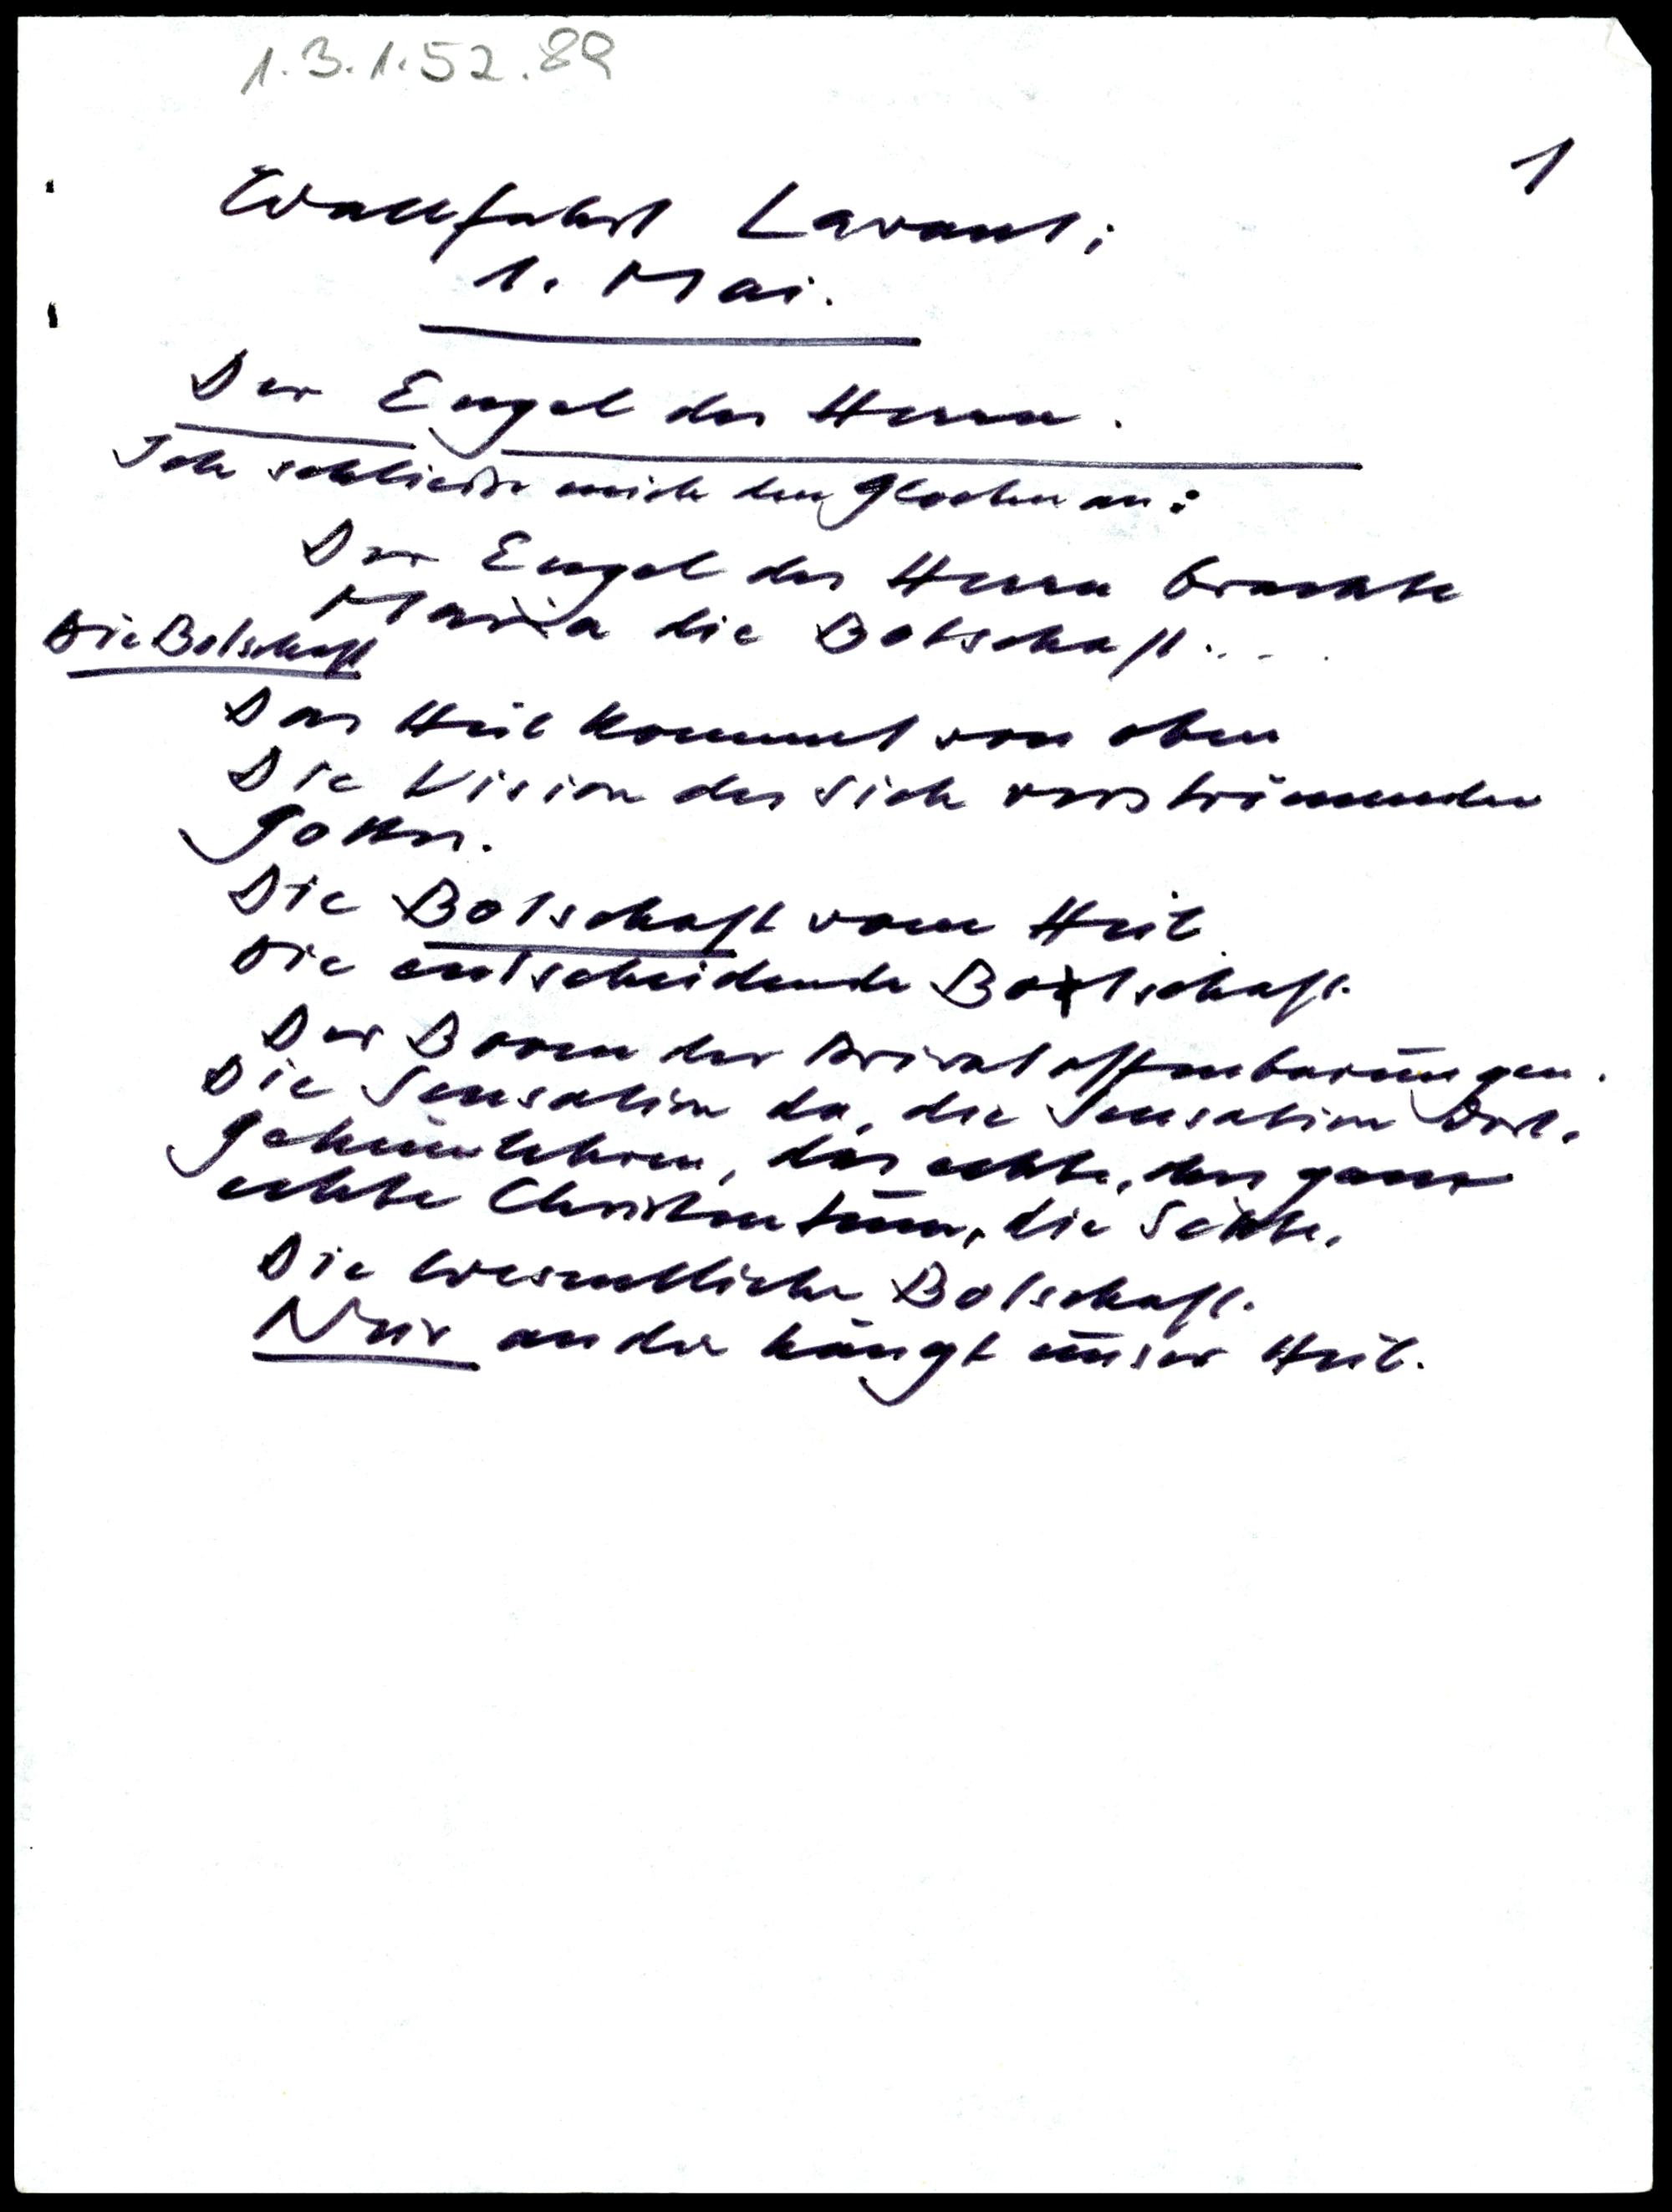 1.3.1.52.89
1
Wallfahrt Lavant;
1. Mai.
Der Engel des Herrn.
Ich schließe mich den Glocken an:
Der Engel des Herrn brachte
Maria die Botschaft....
Die Botschaft
Das Heil kommt von oben
Die Vision des sich verströmenden
Gottes.
Die Botschaft vom Heil
Die entscheidende Botschaft.
Der Boom der Privatoffenbarungen.
Die Sensation da, die Sensation dort.
Geheimlehren, das echte, das ganz
echte Christentum, die Sekte.
Die wesentliche Botschaft.
Nur an der hängt unser Heil.